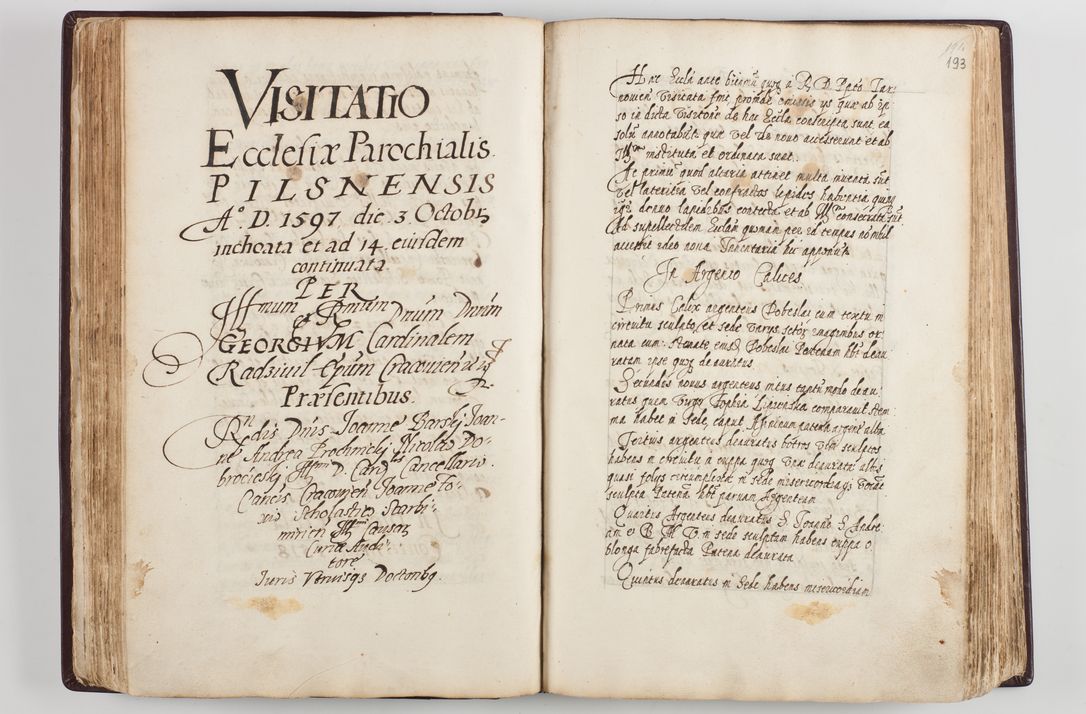 VISITATIO
Ecclesiæ Parochialis.
PILSNENSIS
A.º D. 1597 die 3 Octobr
inchoata et ad 14. eiusdem
continuata
PER
Illmum et Rmum Dnum Dnum
GEORGIVM Cardinalem
Radziuil Epum Cracouien
Præsentibus.
Rndis Dnis Joanne Barskj Joan-
ne Andrea Prochnickj Nicolao Do-
brocieskj Illmi D. Card Cancellario
Canlis Cracouien Joanne Fo-
xio Scholastico Scarbi-
mirien Illmi Causar
Curiæ Audi-
tore
Juris Vtriusqs Doctoribq.
193
Hæc Eccla ante biennũ quoq a R. D. Ppto Tar-
nouien visitata fuit proinde omissis ijs quæ ab ip-
so in dicta visitone de hac Eccla conscripta sunt ea
solũ annotabũt quæ vel de nouo accesserunt et ab
Illmo instituta et ordinata sunt.
Ac primũ quod altaria attinet multa inuenta sũt
vel lateritia vel confractos lapides habentia, quæ
denuo lapidibus contecta et ab Illmo consecrata sũt
Ad supellectilem Ecclæ quoniam per id tempus nõ nihil
accessit ideo noua Inuentaria hic apponũt
In Argento Calices
Primus Calix argenteus Pobeslai cum textu in
circuitu sculpto, et sede varys sctor imaginibus or-
nata cum Pobeslai Patenam hbt deau
ratam ipse quoq deauratus
Secundus nouus argenteus intus tantũ modo deau-
ratus quem virgo Sophia Lipienska comparauit stem
ma habet in sede, caput patena argent alba
Tertius argenteus deauratus botros sculptos
habens in circuitu a cuppa quoq deaurata altis
quasi folys circumplexa in sede misericordia
sculpta Patena hbt paruam Argenteam
Quartus Argenteus deauratus S. Joanˉ S. Andre-
am et B. M. V. in sede sculptam habens cuppa o
blonga fabrefacta Patena deaurata
Quintus deauratus in sede habens misericordiam